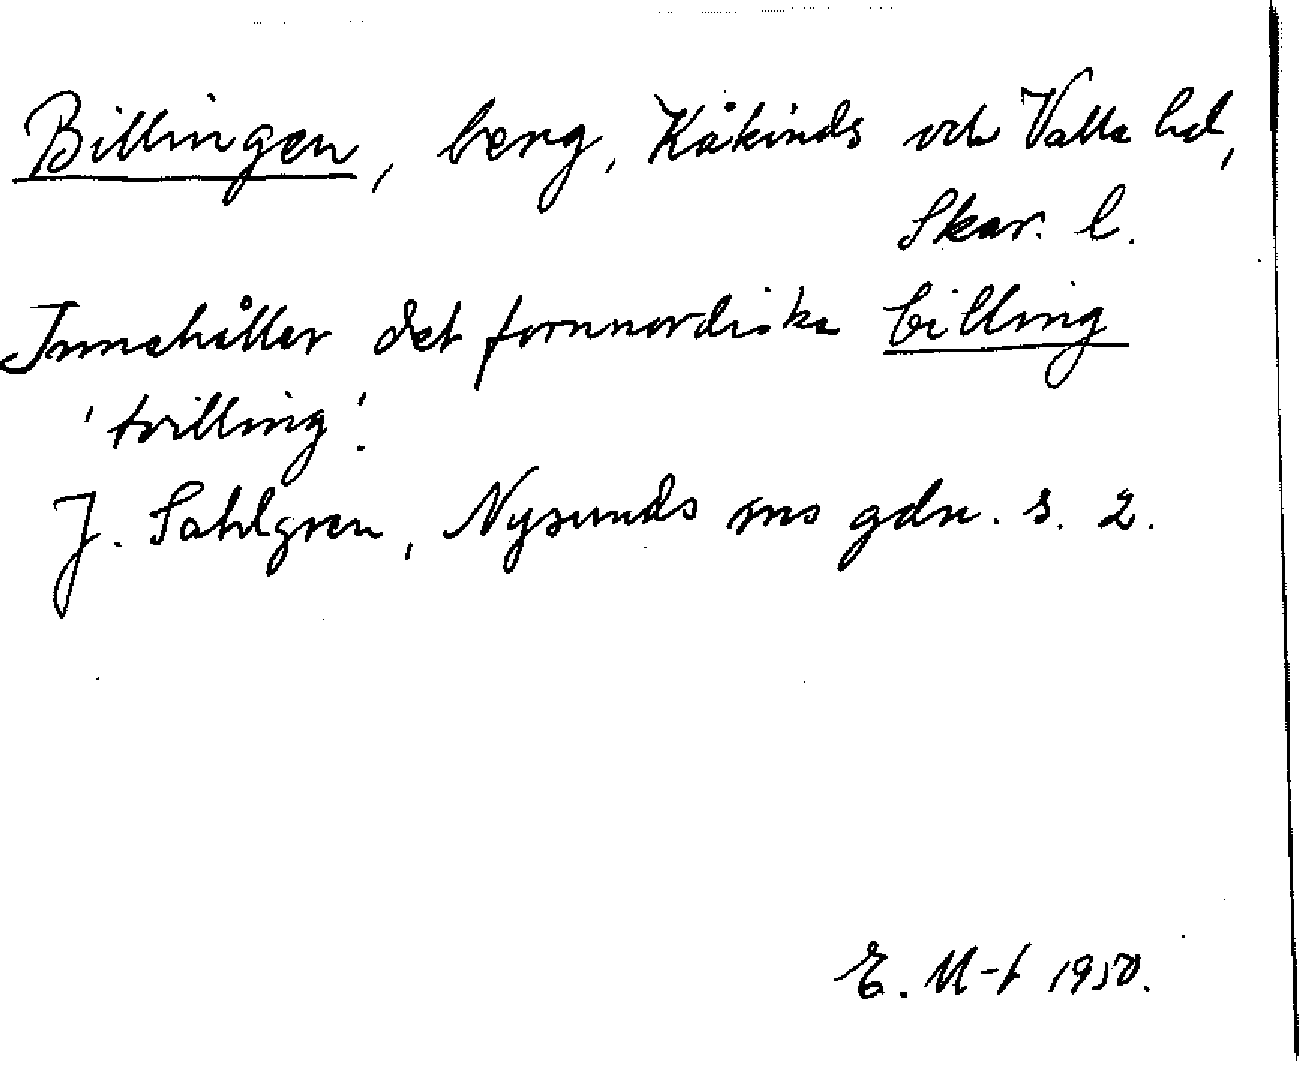 Billingen, berg, Kåkinds och Valle hd,
Skar. l.
Innehåller det fornnordiska billing
'tvilling'.
J. Sahlgren, Nysunds sns gdn. s. 2.
E. M-t 1950.